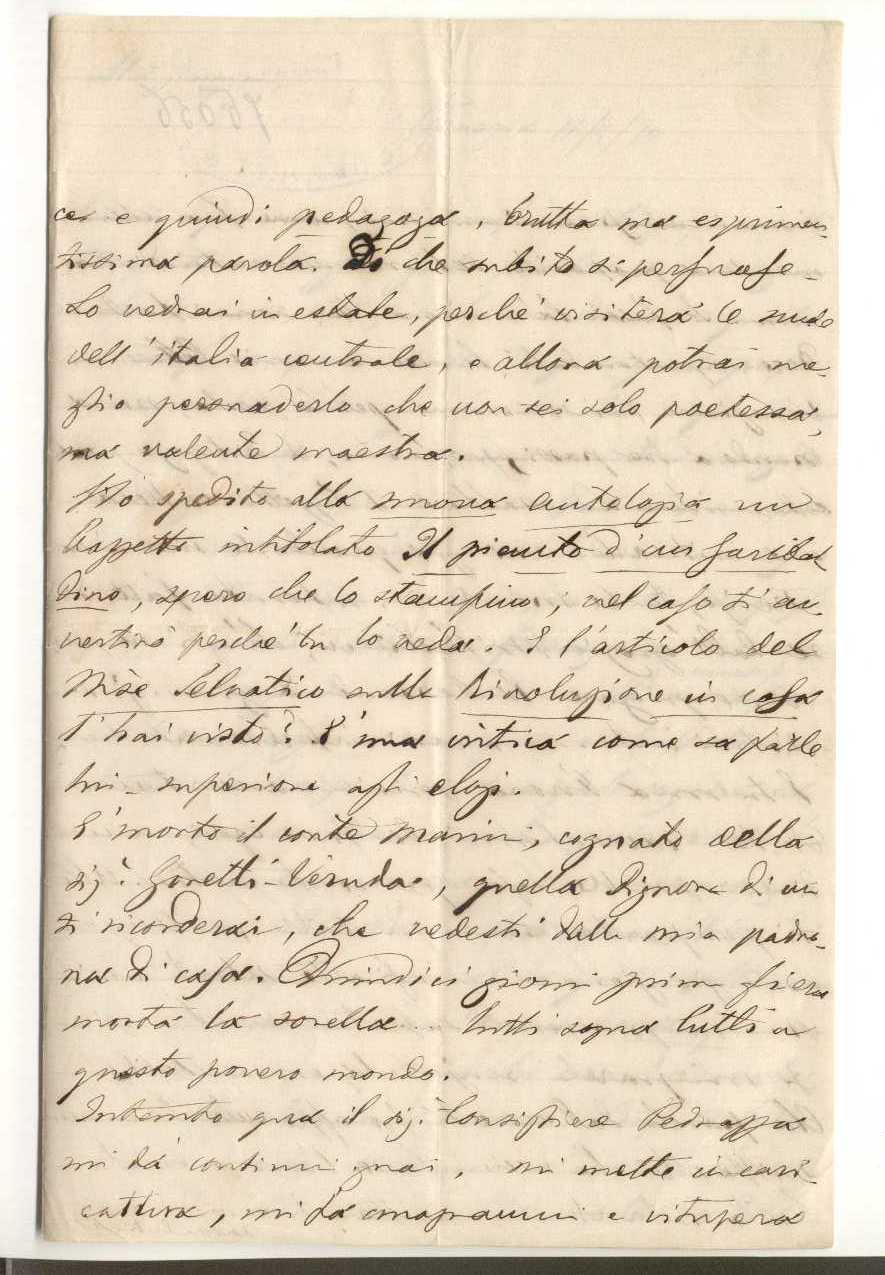 ce e quindi pedagoga, brutta ma esprimen-
tissima parola. Dò che subito si persuase
Lo vedrai in estate, perchè visiterà le scuole
dell'italia centrale, e allora potrai me-
glio persuaderlo che non sei solo poetessa,
ma valente maestra.
Hò spedito alla nuova antologia un
bozzetto intitolato Il pianto d'un garibal
dino, spero che lo stampino, nel caso t'av-
vertirò perchè tu lo veda. E l'articolo del
Mise Selvatico sulla Rivoluzione in casa
l'hai visto? E' una critica come sa farle
lui superiore agli elogi.
E' morto il conte Marini, cognato della
sig.ª Goretti-Veruda, quella Signora di cui
ti ricorderai, che vedesti dalla mia padro-
na di casa. Quindici giorni prima gli era
morta la sorella... lutti sopra lutti a
questo povero mondo.
Intanto qua il sig.r Consigliere Pedrazza
mi dà continui guai, mi mette in cari-
cattura, mi fa anagrammi e vitupera